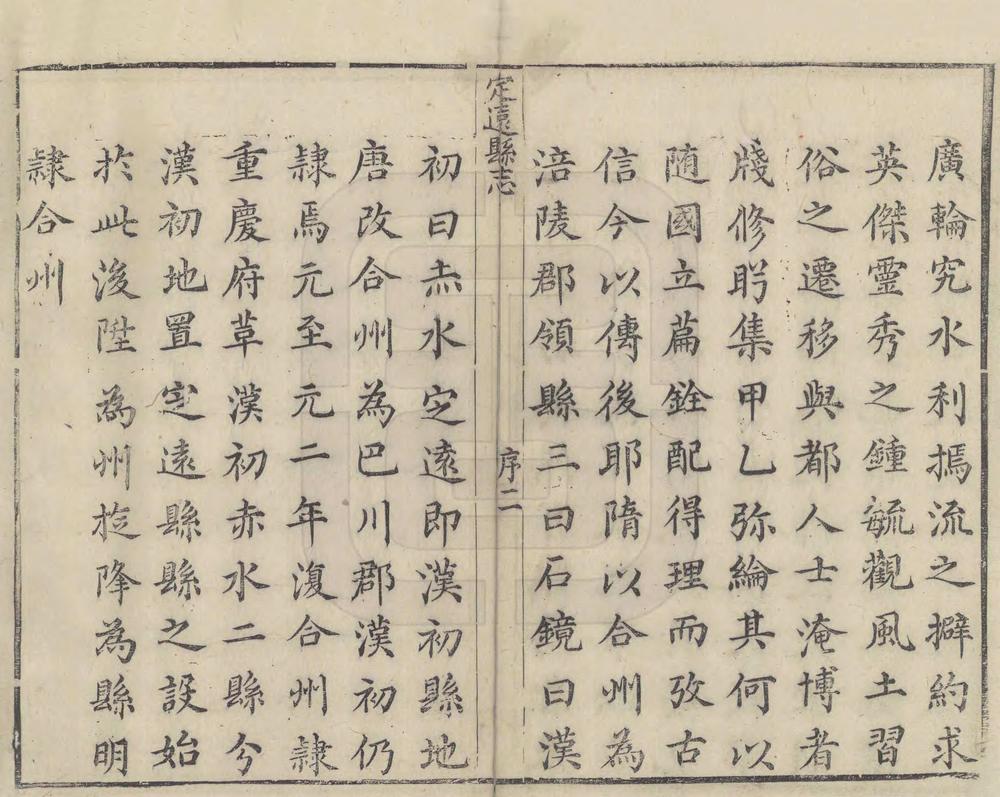 廣輪究水利撝流之擗約求
英傑霊秀之鍾毓觀風土習
俗之遷移與都人士淹博者
牋修眝集甲乙弥綸其何以
随國立篇銓配得理而攷古
信今以傳後耶隋以合州為
涪陵郡領縣三曰石鏡曰漢
定遠縣志
序二
初曰赤水定遠即漢初縣地
唐改合州為巴川郡漢初仍
隷焉元至元二年復合州隷
重慶府草漢初赤水二縣分
漢初地置定遠縣縣之設始
扵此後陞為州旋降為縣明
隷合州